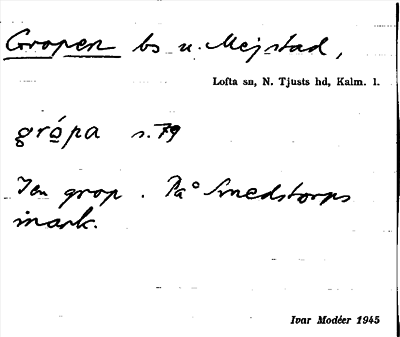 Gropen bs u. Mejstad,
Lofta sn, N. Tjusts hd, Kalm. l.
grópa s. 79
I en grop. På Smedstorps
mark.
Ivar Modéer 1945